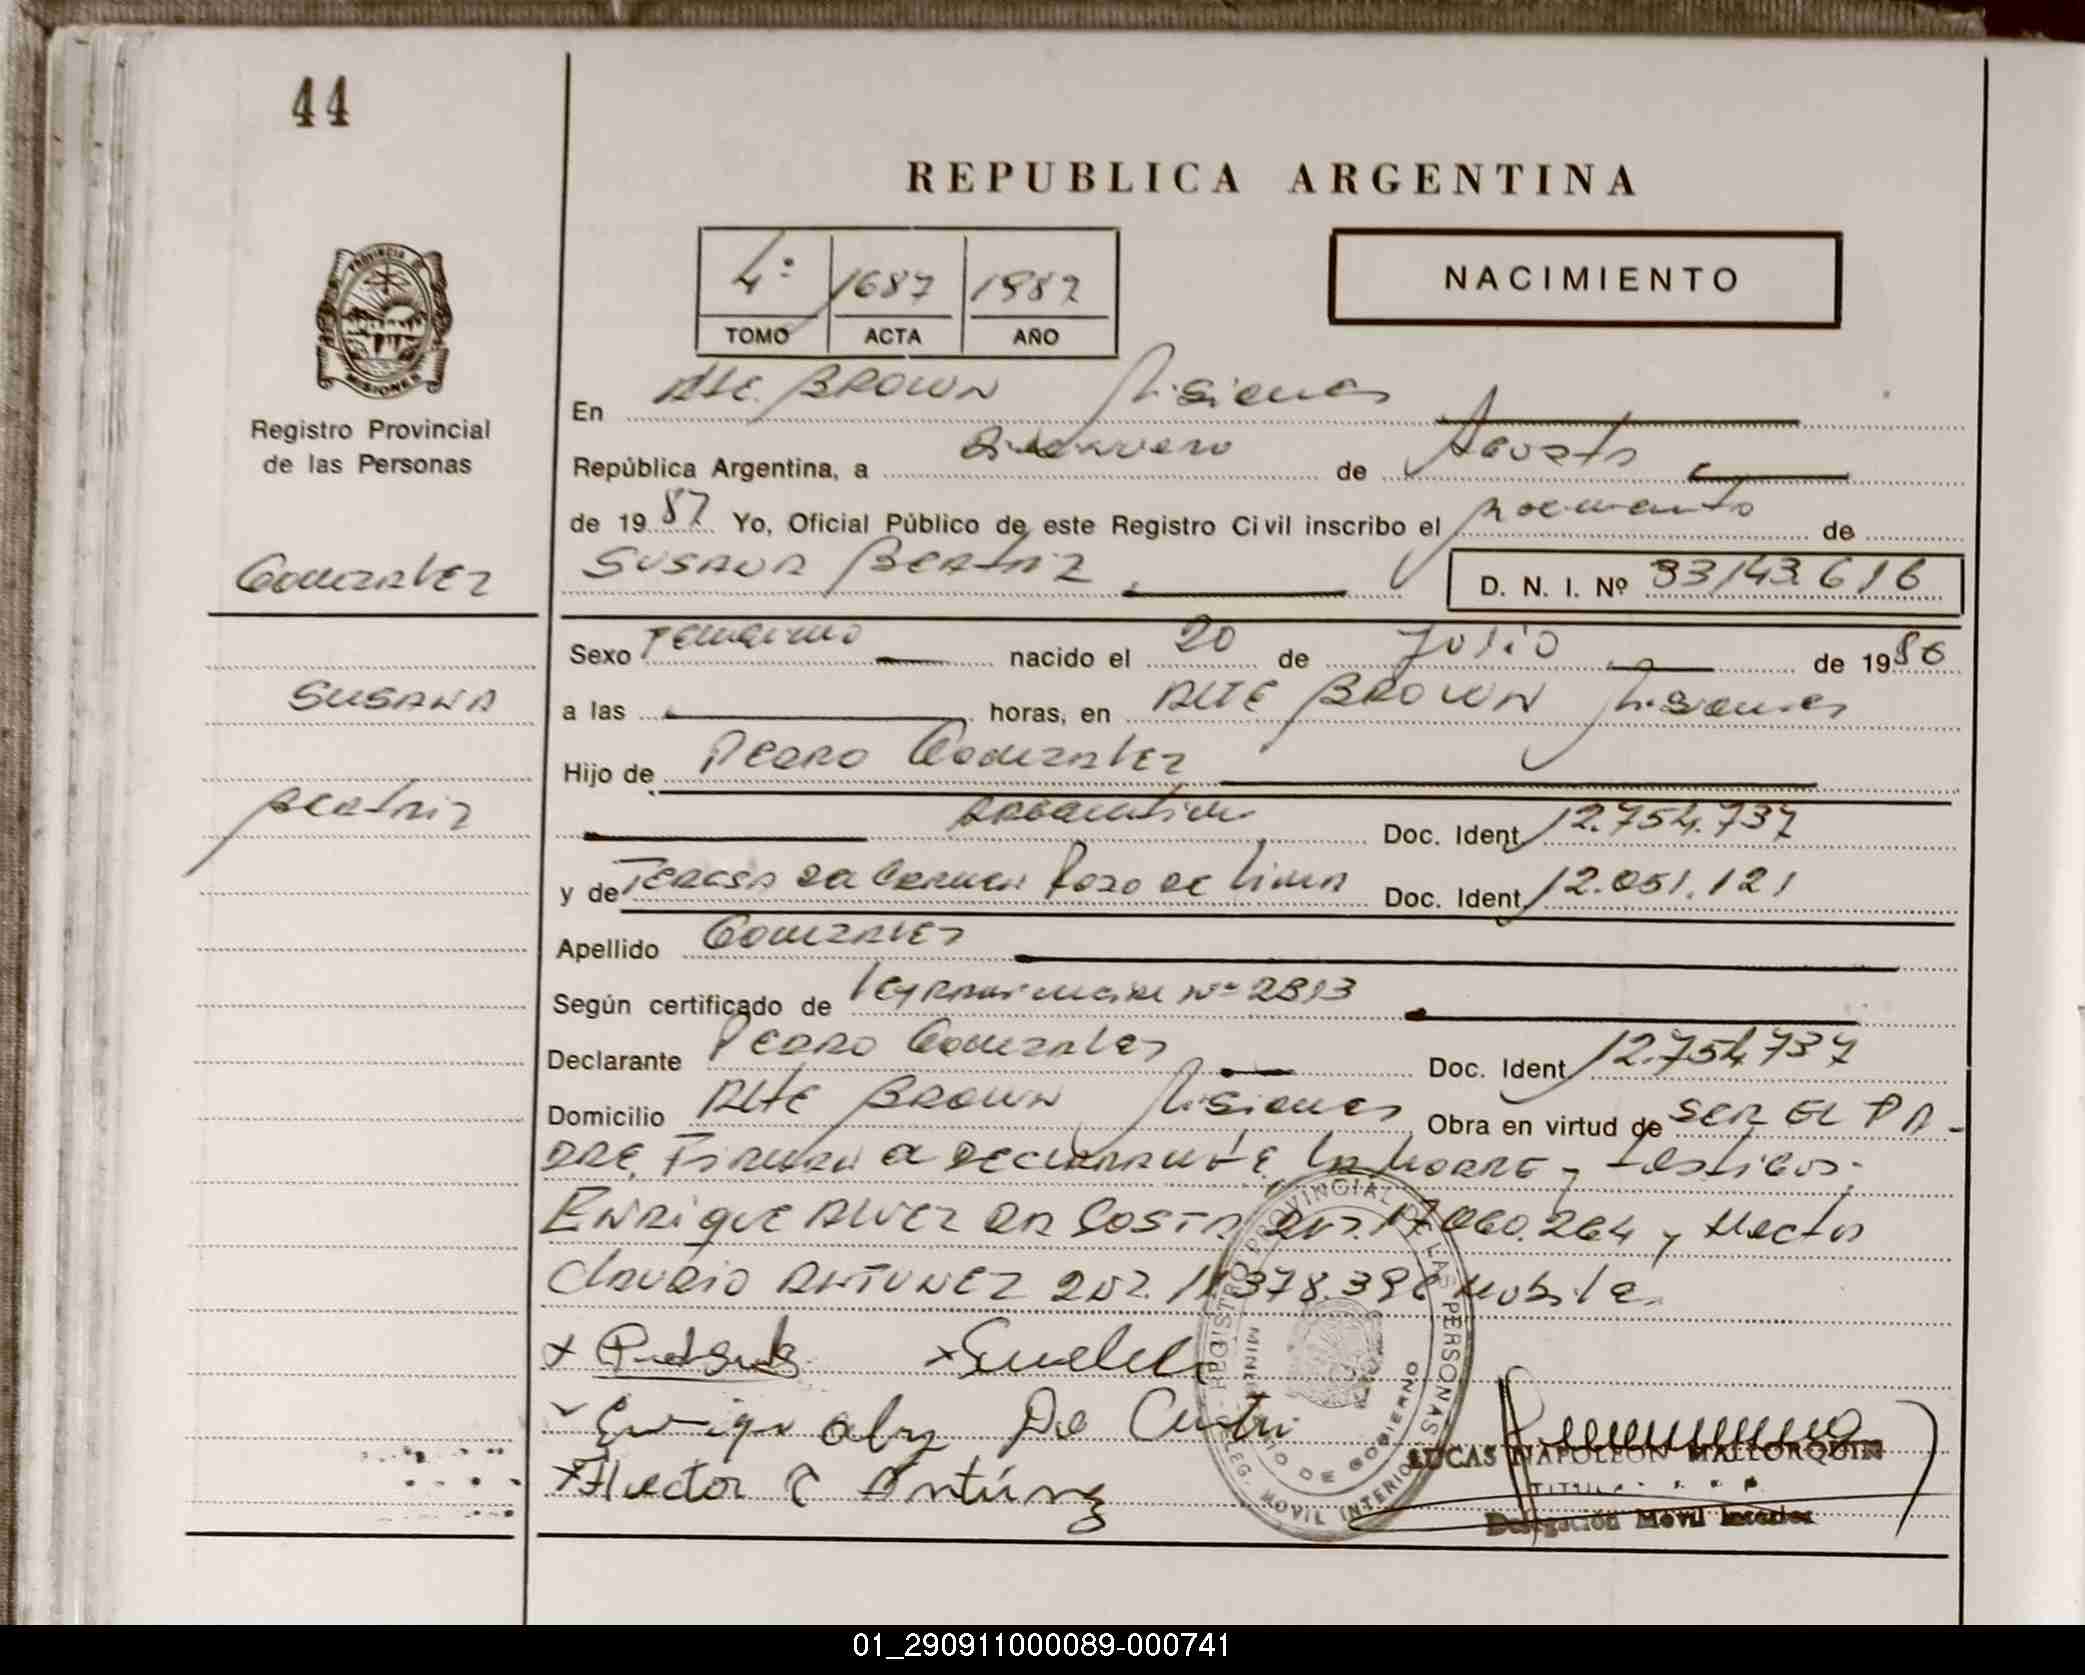 44
REPUBLICA ARGENTINA
4º 1687 1987
TOMO ACTA AÑO
NACIMIENTO
PROVINCIA DE
MISIONES
Registro Provincial
de las Personas
Gonzalez
SUSANA
Beatriz
En Alte. BROWN Misiones
República Argentina, a de Agosto
de 1987 Yo, Oficial Público de este Registro Civil inscribo el nacimiento de
SUSANA BEATRIZ D. N. I. Nº 33143.616
Sexo Femenino nacido el 20 de Julio de 1986
a las horas, en ALTE BROWN Misiones
Hijo de PEDRO Gonzalez
Argentino Doc. Ident. 12.754.737
y de TERESA del Carmen Pozo de Lima Doc. Ident. 12.051.121
Apellido Gonzalez
Según certificado de Nº 2813
Declarante PEDRO Gonzalez Doc. Ident 12.754.737
Domicilio Alte BROWN Misiones Obra en virtud de SER EL PA-
DRE. Firman el DECLARANTE, la MADRE y testigos:
ENRIQUE ALVEZ DA COSTA 17.060.264 y Hector
Claudio ANTUNEZ 378.396
x x
Enrique De
x Hector C Antúnez
REGISTRO PROVINCIAL DE LAS PERSONAS
MINISTERIO DE GOBIERNO
DELEG. MOVIL INTERIOR
LUCAS NAPOLEON MALLORQUIN
TITULAR
Delegación Movil Interior
01_290911000089-000741